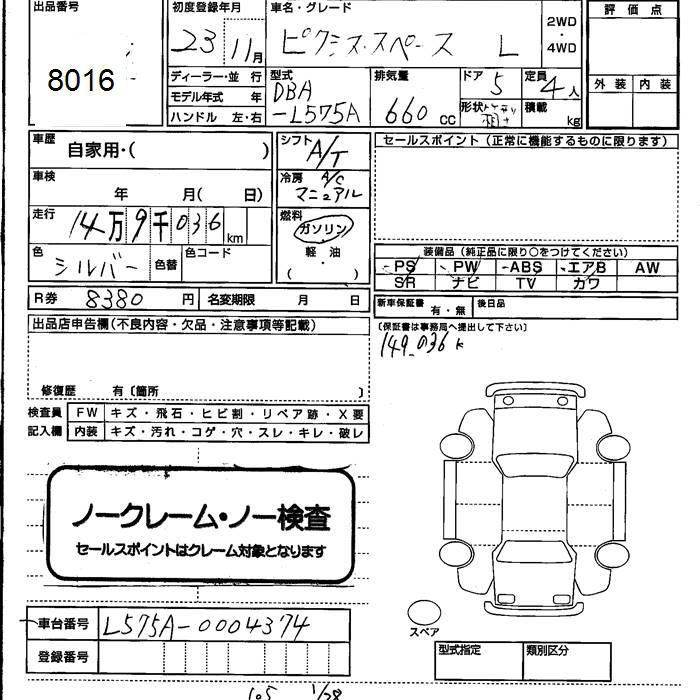 出品番号 初度登録年月 車名・グレード 評価点
8016 23 11月 ピクシス・スペース L 2WD・4WD
ディーラー・並行 型式 排気量 ドア 定員 外装 内装
モデル年式 年 DBA 5 4人
ハンドル 左・右 -L575A 660cc 形状 積載 kg
車歴 自家用・( ) シフト A/T セールスポイント(正常に機能するものに限ります)
車検 年 月( 日) 冷房 A/C マニュアル
走行 14万9千036km 燃料 ガソリン・軽油・( )
色 シルバー 色替 色コード 装備品(純正品に限り○をつけてください)
PS PW ABS エアB AW
SR ナビ TV カワ
R券 8380円 名変期限 月 日 新車保証書 有・無 後日品
出品店申告欄(不良内容・欠品・注意事項等記載) (保証書は事務局へ提出して下さい)
149,036k
修復歴 有〔箇所 〕
検査員記入欄 FW キズ・飛石・ヒビ割・リペア跡・X要
内装 キズ・汚れ・コゲ・穴・スレ・キレ・破レ
ノークレーム・ノー検査
セールスポイントはクレーム対象となります
車台番号 L575A-0004374
スペア
登録番号 型式指定 類別区分
105 1/28